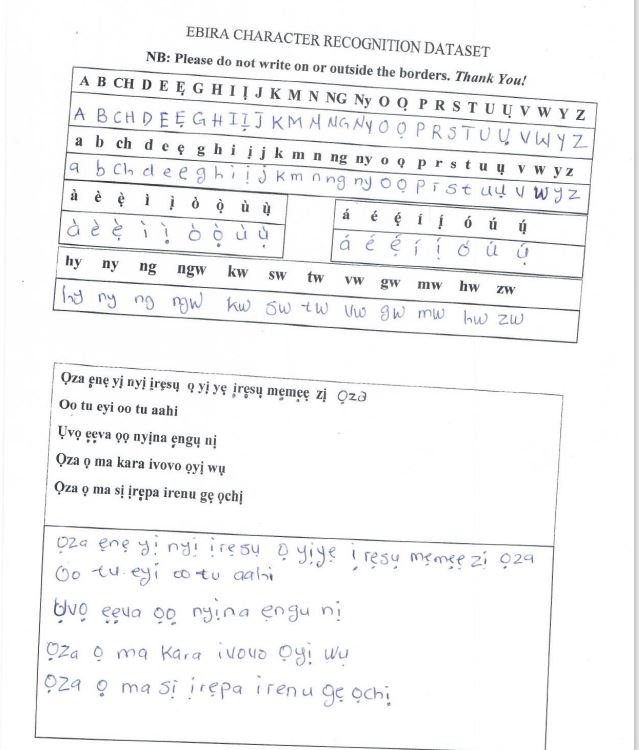 EBIRA CHARACTER RECOGNITION DATASET
NB: Please do not write on or outside the borders. Thank You!
A B CH D E Ẹ G H I Ị J K M N NG Ny O Ọ P R S T U Ụ V W Y Z
A B CH D E Ẹ G H I Ị J K M N NG Ny O Ọ P R S T U Ụ V W Y Z
a b ch d e ẹ g h i ị j k m n ng ny o ọ p r s t u ụ v w y z
a b Ch d e ẹ g h i ị j k m n ng ny o ọ p r s t u ụ v w y z
à è ẹ̀ ì ị̀ ò ọ̀ ù ụ̀
à è ẹ̀ ì ị̀ ò ọ̀ ù ụ̀
á é ẹ́ í ị́ ó ú ụ́
á é ẹ́ í ị́ ó ú ụ́
hy ny ng ngw kw sw tw vw gw mw hw zw
hy ny ng ngw kw sw tw vw gw mw hw zw
Ọza ẹnẹ yị nyị ịrẹsụ ọ yị yẹ ịrẹsụ mẹmẹẹ zị ọza
Oo tu eyi oo tu aahi
Ụvọ ẹẹva ọọ nyịna ẹngụ nị
Ọza ọ ma kara ivovo ọyị wụ
Ọza ọ ma sị ịrẹpa irenu gẹ ọchị
Ọza ẹnẹ yị nyị ịrẹsụ ọ yịyẹ ịrẹsụ mẹmẹẹ zị ọza
Oo tu eyi oo tu aahi
Ụvọ ẹẹva ọọ nyịna ẹngu nị
Ọza ọ ma kara ivovo ọyị wụ
Ọza ọ ma sị ịrẹpa irenu gẹ ọchị